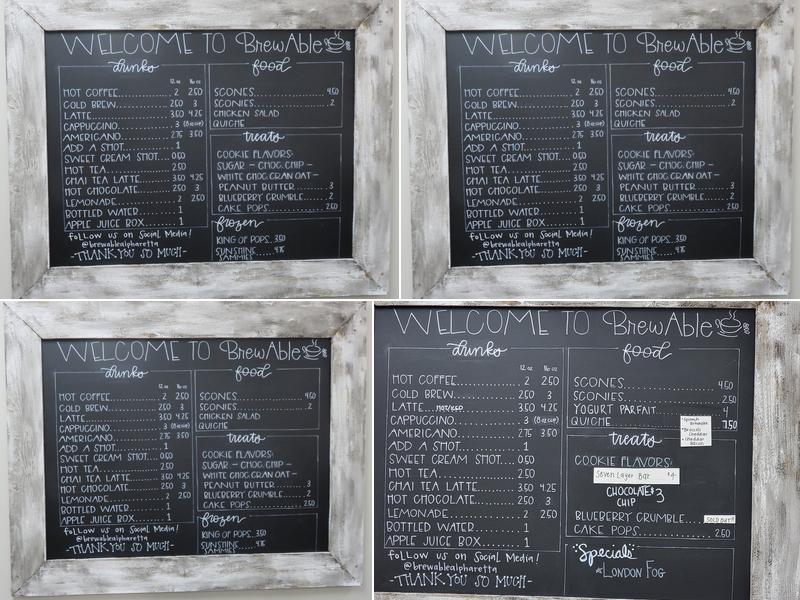 WELCOME TO BrewAble
drinks
12 oz 16 oz
HOT COFFEE 2 2.50
COLD BREW 2.50 3
LATTE 3.50 4.25
CAPPUCCINO 3 (8oz)
AMERICANO 2.75 3.50
ADD A SHOT 1
SWEET CREAM SHOT 0.50
HOT TEA 2.50
CHAI TEA LATTE 3.50 4.25
HOT CHOCOLATE 2.50 3
LEMONADE 2 2.50
BOTTLED WATER 1
APPLE JUICE BOX 1
follow us on Social Media!
@brewablealpharetta
-THANK YOU SO MUCH-
food
SCONES 4.50
SCONIES 2
CHICKEN SALAD
QUICHE
treats
COOKIE FLAVORS:
SUGAR - CHOC.CHIP -
WHITE CHOC.CRAN OAT -
PEANUT BUTTER 3
BLUEBERRY CRUMBLE 2
CAKE POPS 2.50
frozen
KING OF POPS 3.50
SUNSHINE 4.75
SAMMIES
WELCOME TO BrewAble
drinks
12 oz 16 oz
HOT COFFEE 2 2.50
COLD BREW 2.50 3
LATTE 3.50 4.25
CAPPUCCINO 3 (8oz)
AMERICANO 2.75 3.50
ADD A SHOT 1
SWEET CREAM SHOT 0.50
HOT TEA 2.50
CHAI TEA LATTE 3.50 4.25
HOT CHOCOLATE 2.50 3
LEMONADE 2 2.50
BOTTLED WATER 1
APPLE JUICE BOX 1
follow us on Social Media!
@brewablealpharetta
-THANK YOU SO MUCH-
food
SCONES 4.50
SCONIES 2
CHICKEN SALAD
QUICHE
treats
COOKIE FLAVORS:
SUGAR - CHOC.CHIP -
WHITE CHOC.CRAN OAT -
PEANUT BUTTER 3
BLUEBERRY CRUMBLE 2
CAKE POPS 2.50
frozen
KING OF POPS 3.50
SUNSHINE 4.75
SAMMIES
WELCOME TO BrewAble
drinks
12 oz 16 oz
HOT COFFEE 2 2.50
COLD BREW 2.50 3
LATTE 3.50 4.25
CAPPUCCINO 3 (8oz)
AMERICANO 2.75 3.50
ADD A SHOT 1
SWEET CREAM SHOT 0.50
HOT TEA 2.50
CHAI TEA LATTE 3.50 4.25
HOT CHOCOLATE 2.50 3
LEMONADE 2 2.50
BOTTLED WATER 1
APPLE JUICE BOX 1
follow us on Social Media!
@brewablealpharetta
-THANK YOU SO MUCH-
food
SCONES 4.50
SCONIES 2
CHICKEN SALAD
QUICHE
treats
COOKIE FLAVORS:
SUGAR - CHOC.CHIP -
WHITE CHOC.CRAN OAT -
PEANUT BUTTER 3
BLUEBERRY CRUMBLE 2
CAKE POPS 2.50
frozen
KING OF POPS 3.50
SUNSHINE 4.75
SAMMIES
WELCOME TO BrewAble
drinks
12 oz 16 oz
HOT COFFEE 2 2.50
COLD BREW 2.50 3
LATTE HOT/ICED 3.50 4.25
CAPPUCCINO 3 (8oz)
AMERICANO 2.75 3.50
ADD A SHOT 1
SWEET CREAM SHOT 0.50
HOT TEA 2.50
CHAI TEA LATTE 3.50 4.25
HOT CHOCOLATE 2.50 3
LEMONADE 2 2.50
BOTTLED WATER 1
APPLE JUICE BOX 1
follow us on Social Media!
@brewablealpharetta
-THANK YOU SO MUCH-
food
SCONES 4.50
SCONIES 2.50
YOGURT PARFAIT 4
QUICHE 7.50
Broccoli
Cheddar
Cheddar
Bacon
treats
COOKIE FLAVORS:
Seven Layer Bar $4
CHOCOLATE $3
CHIP
BLUEBERRY CRUMBLE SOLD OUT!!
CAKE POPS 2.50
Specials
LONDON FOG